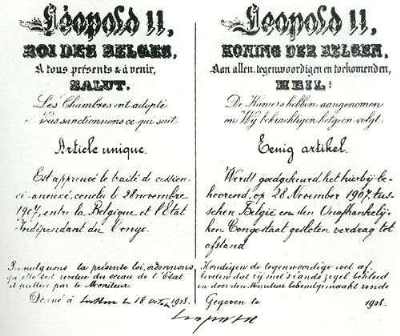 Léopold II,
ROI DES BELGES,
A tous présents & à venir,
SALUT.
Les Chambres ont adopté
et Nous sanctionnons ce qui suit
Article unique.
Est approuvé le traité de cession
ci-annexé, conclu le 28 novembre
1907, entre la Belgique et l'Etat
Indépendant du Congo.
Promulguons la présente loi, ordonnons
qu'elle soit revêtue du sceau de l'Etat
et publiée par le Moniteur.
Donné à le 18 1908.
Léopold II,
KONING DER BELGEN,
Aan allen, tegenwoordigen en toekomenden,
HEIL!
De Kamers hebben aangenomen
en Wij bekrachtigen hetgeen volgt:
Eenig artikel.
Wordt goedgekeurd het hierbij be-
hoorend, op 28 November 1907, tus-
schen België en den Onafhankelij-
ken Congostaat gesloten verdrag tot
afstand
Kondigen de tegenwoordige wet af,
's lands zegel bekleed
en door den Moniteur bekendgemaakt worde
Gegeven te 1908.
Léopold